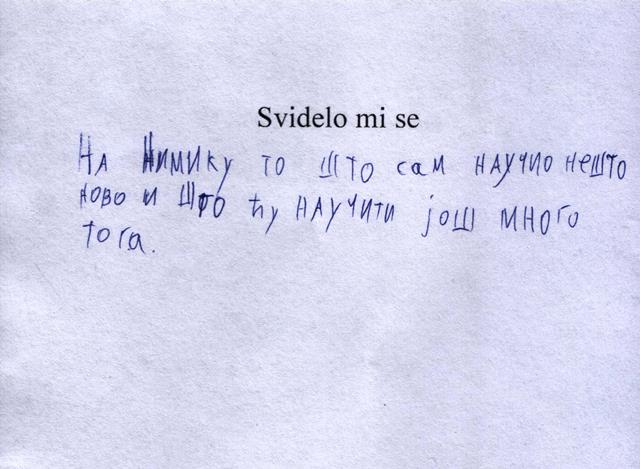 Svidelo mi se
НА НИМИКУ ТО ШТО САМ НАУЧИО НЕШТО
НОВО И ШТО ЋУ НАУЧИТИ ЈОШ МНОГО
ТОГА.